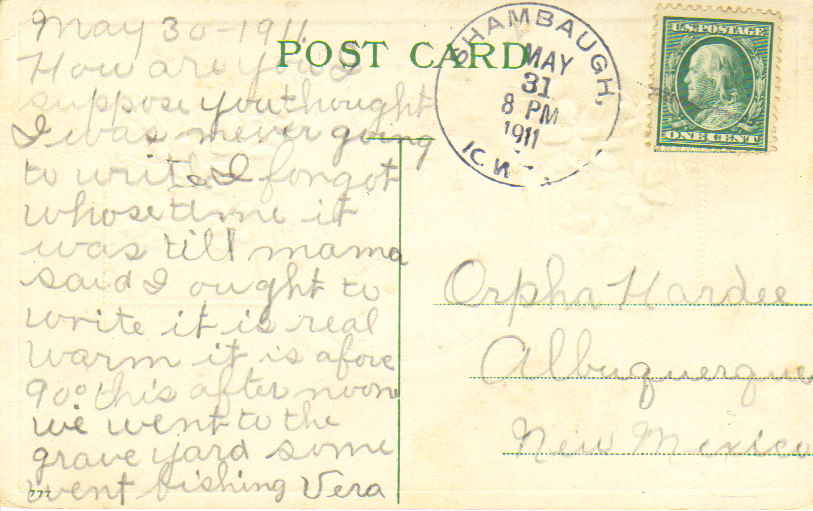 May 30-1911
POST CARD
How are you I
suppose you thought
I was never going
to write I forgot
whose time it
was till mama
said I ought to
write it is real
warm it is afore
90° this after noon
we went to the
grave yard some
went fishing Vera
777
SHAMBAUGH,
MAY
31
8 PM
1911
U.S. POSTAGE
ONE CENT
Orpha Hardee
Albuquerque
New Mexico